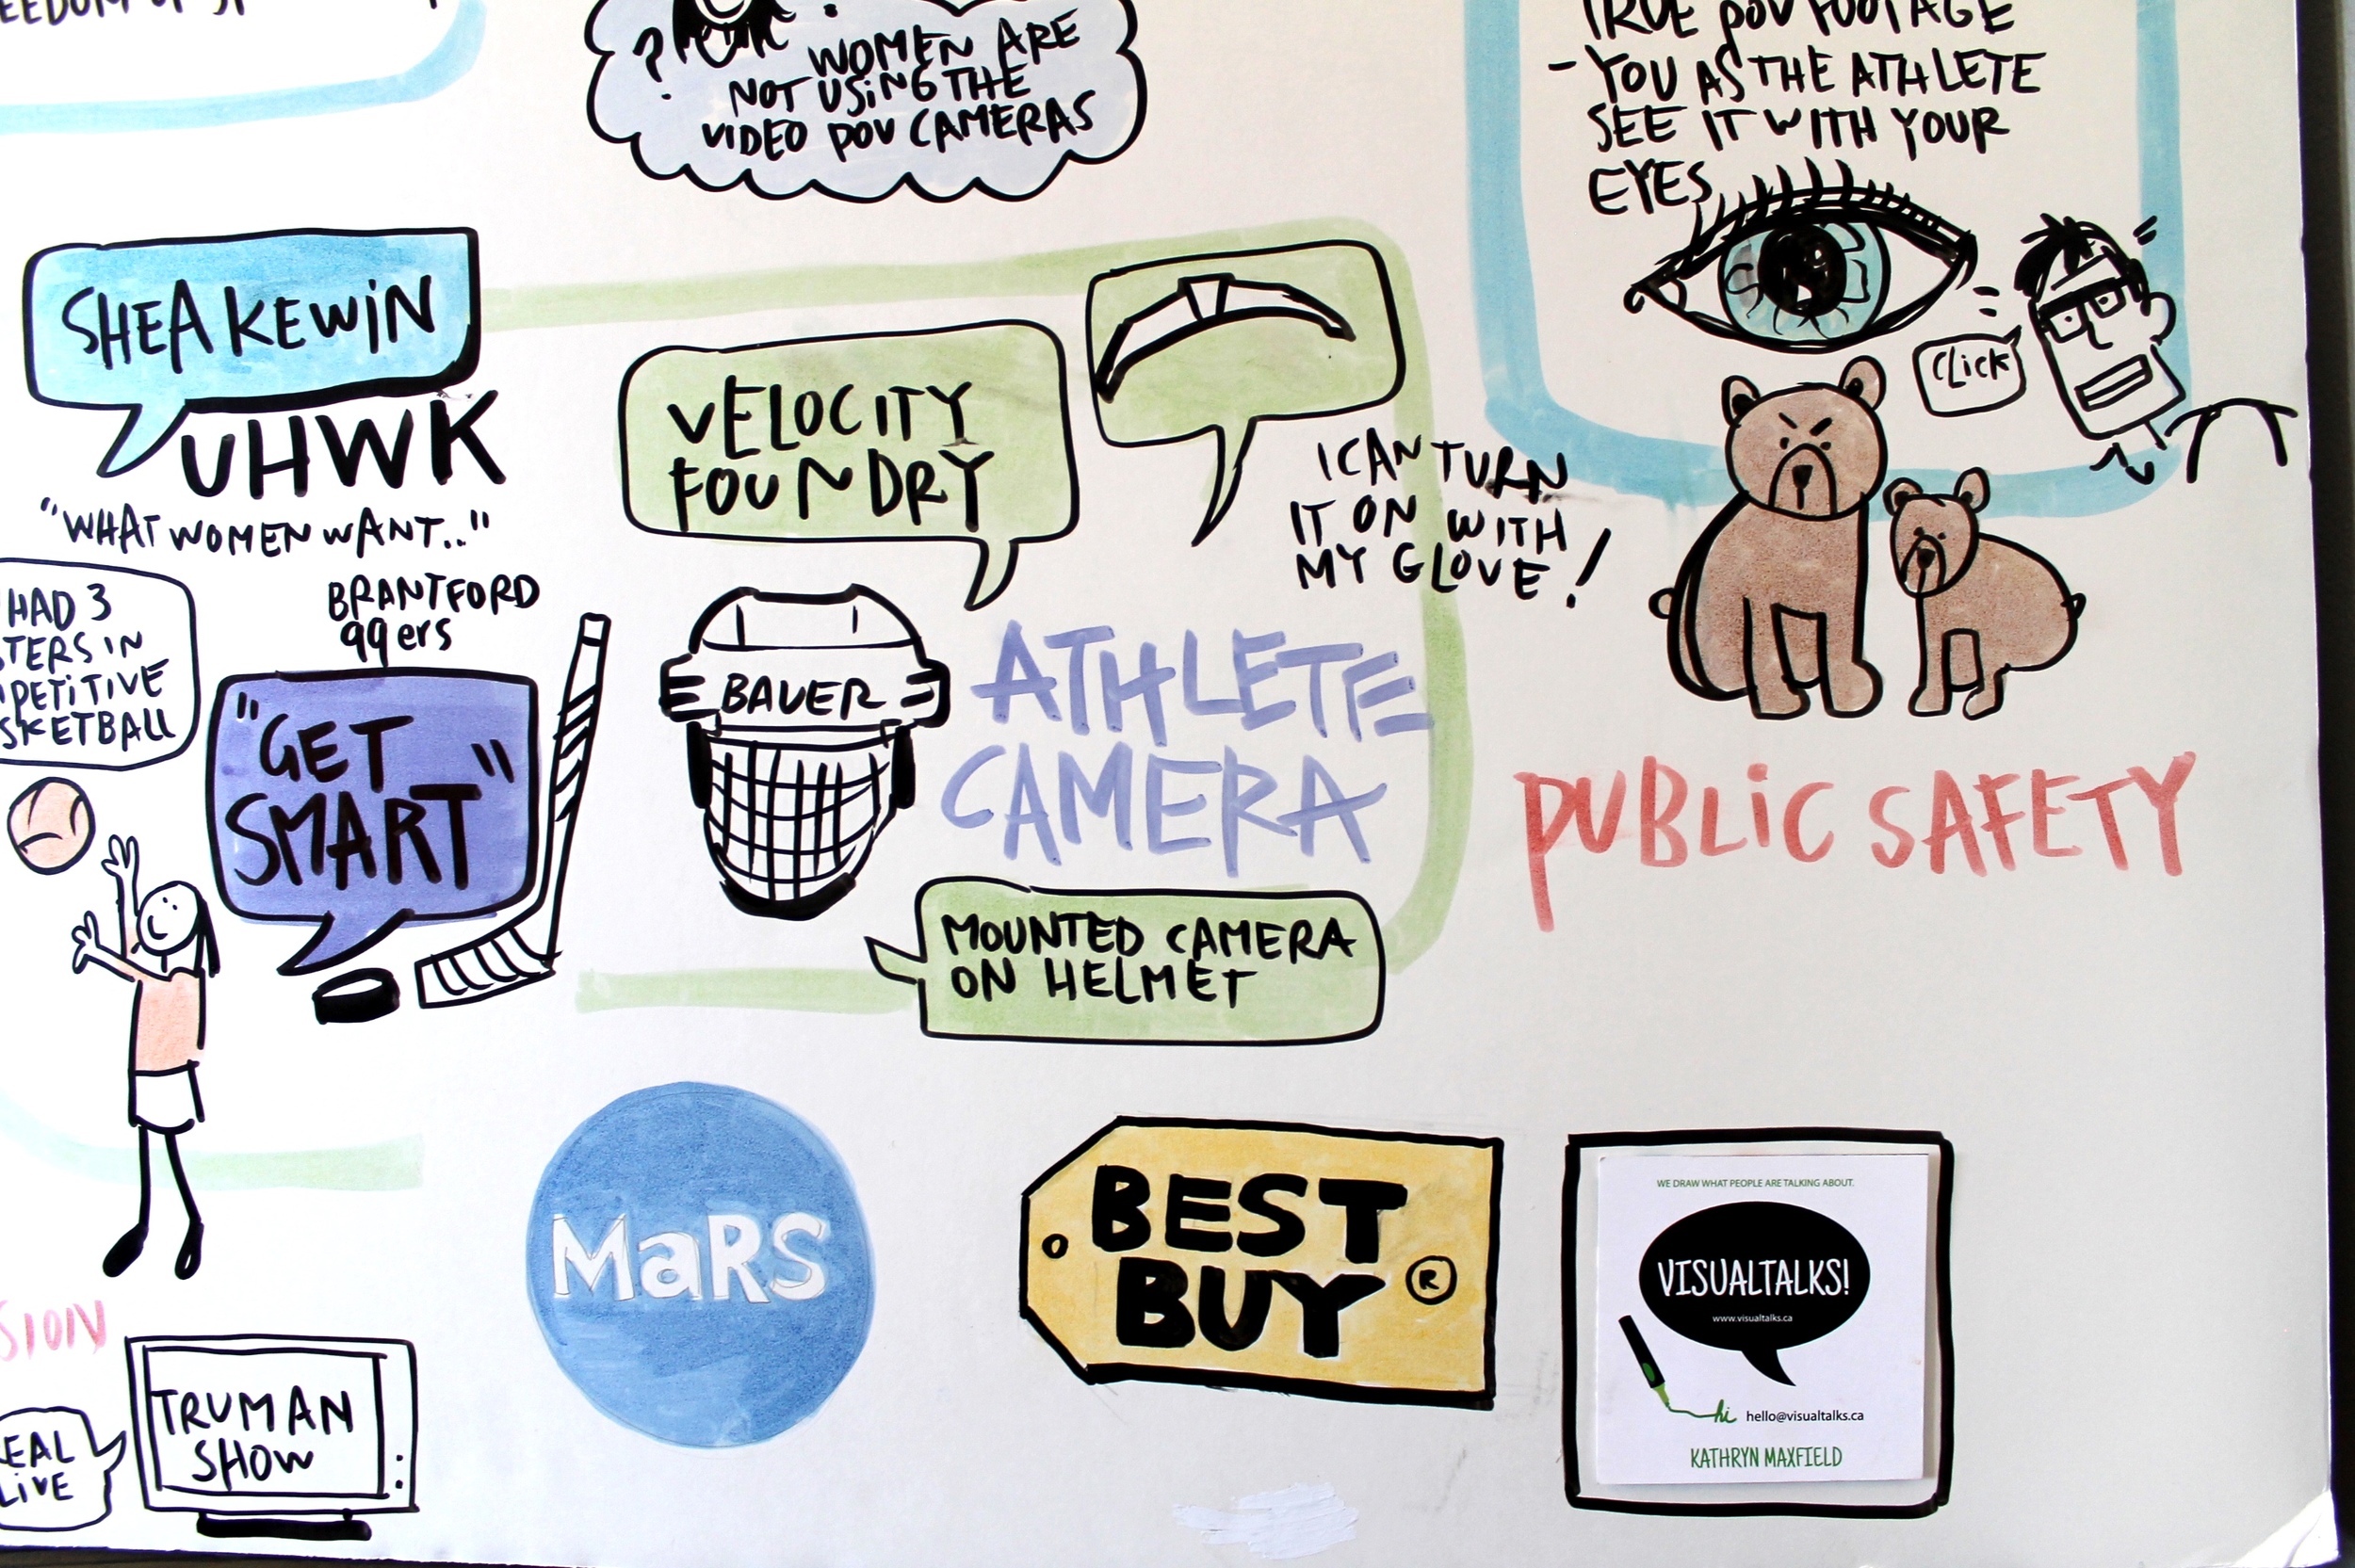 WOMEN ARE
NOT USING THE
VIDEO POV CAMERAS
TRUE POV FOOTAGE
- YOU AS THE ATHLETE
SEE IT WITH YOUR
EYES
CLICK
SHEA KEWIN
UHWK
"WHAT WOMEN WANT.."
HAD 3
IN
BRANTFORD
99ers
"GET
SMART"
VELOCITY
FOUNDRY
I CAN TURN
IT ON WITH
MY GLOVE!
BAUER
ATHLETE
CAMERA
MOUNTED CAMERA
ON HELMET
PUBLIC SAFETY
TRUMAN
SHOW
LIVE
MaRS
BEST
BUY ®
WE DRAW WHAT PEOPLE ARE TALKING ABOUT.
VISUALTALKS!
www.visualtalks.ca
hi hello@visualtalks.ca
KATHRYN MAXFIELD